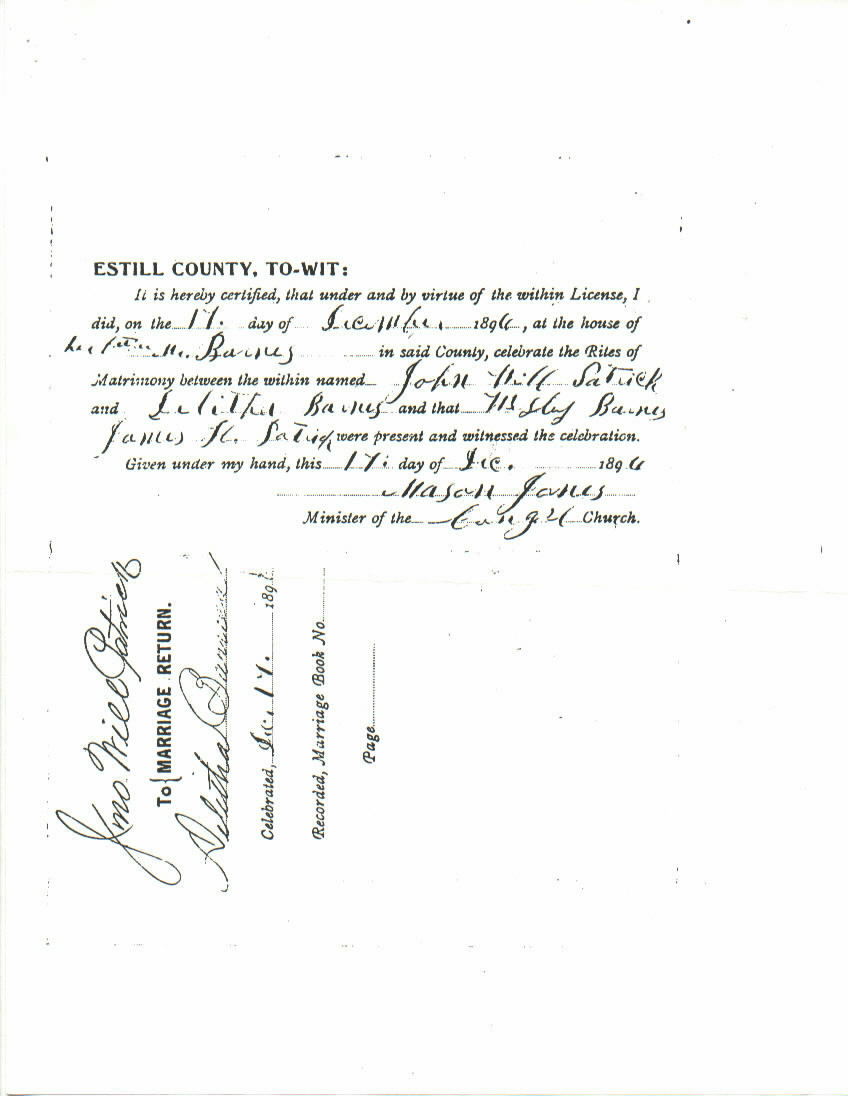 ESTILL COUNTY, TO-WIT:
It is hereby certified, that under and by virtue of the within License, I
did, on the 17. day of December 1896, at the house of
Barnes in said County, celebrate the Rites of
Matrimony between the within named John Will Patrick
and Barnes and that Barnes
James H. Patrick were present and witnessed the celebration.
Given under my hand, this 17. day of Dec. 1896
Mason Jones
Minister of the Church.
Jno. Will Patrick
To { MARRIAGE RETURN.
Celebrated, Dec. 17. 189
Recorded, Marriage Book No.
Page